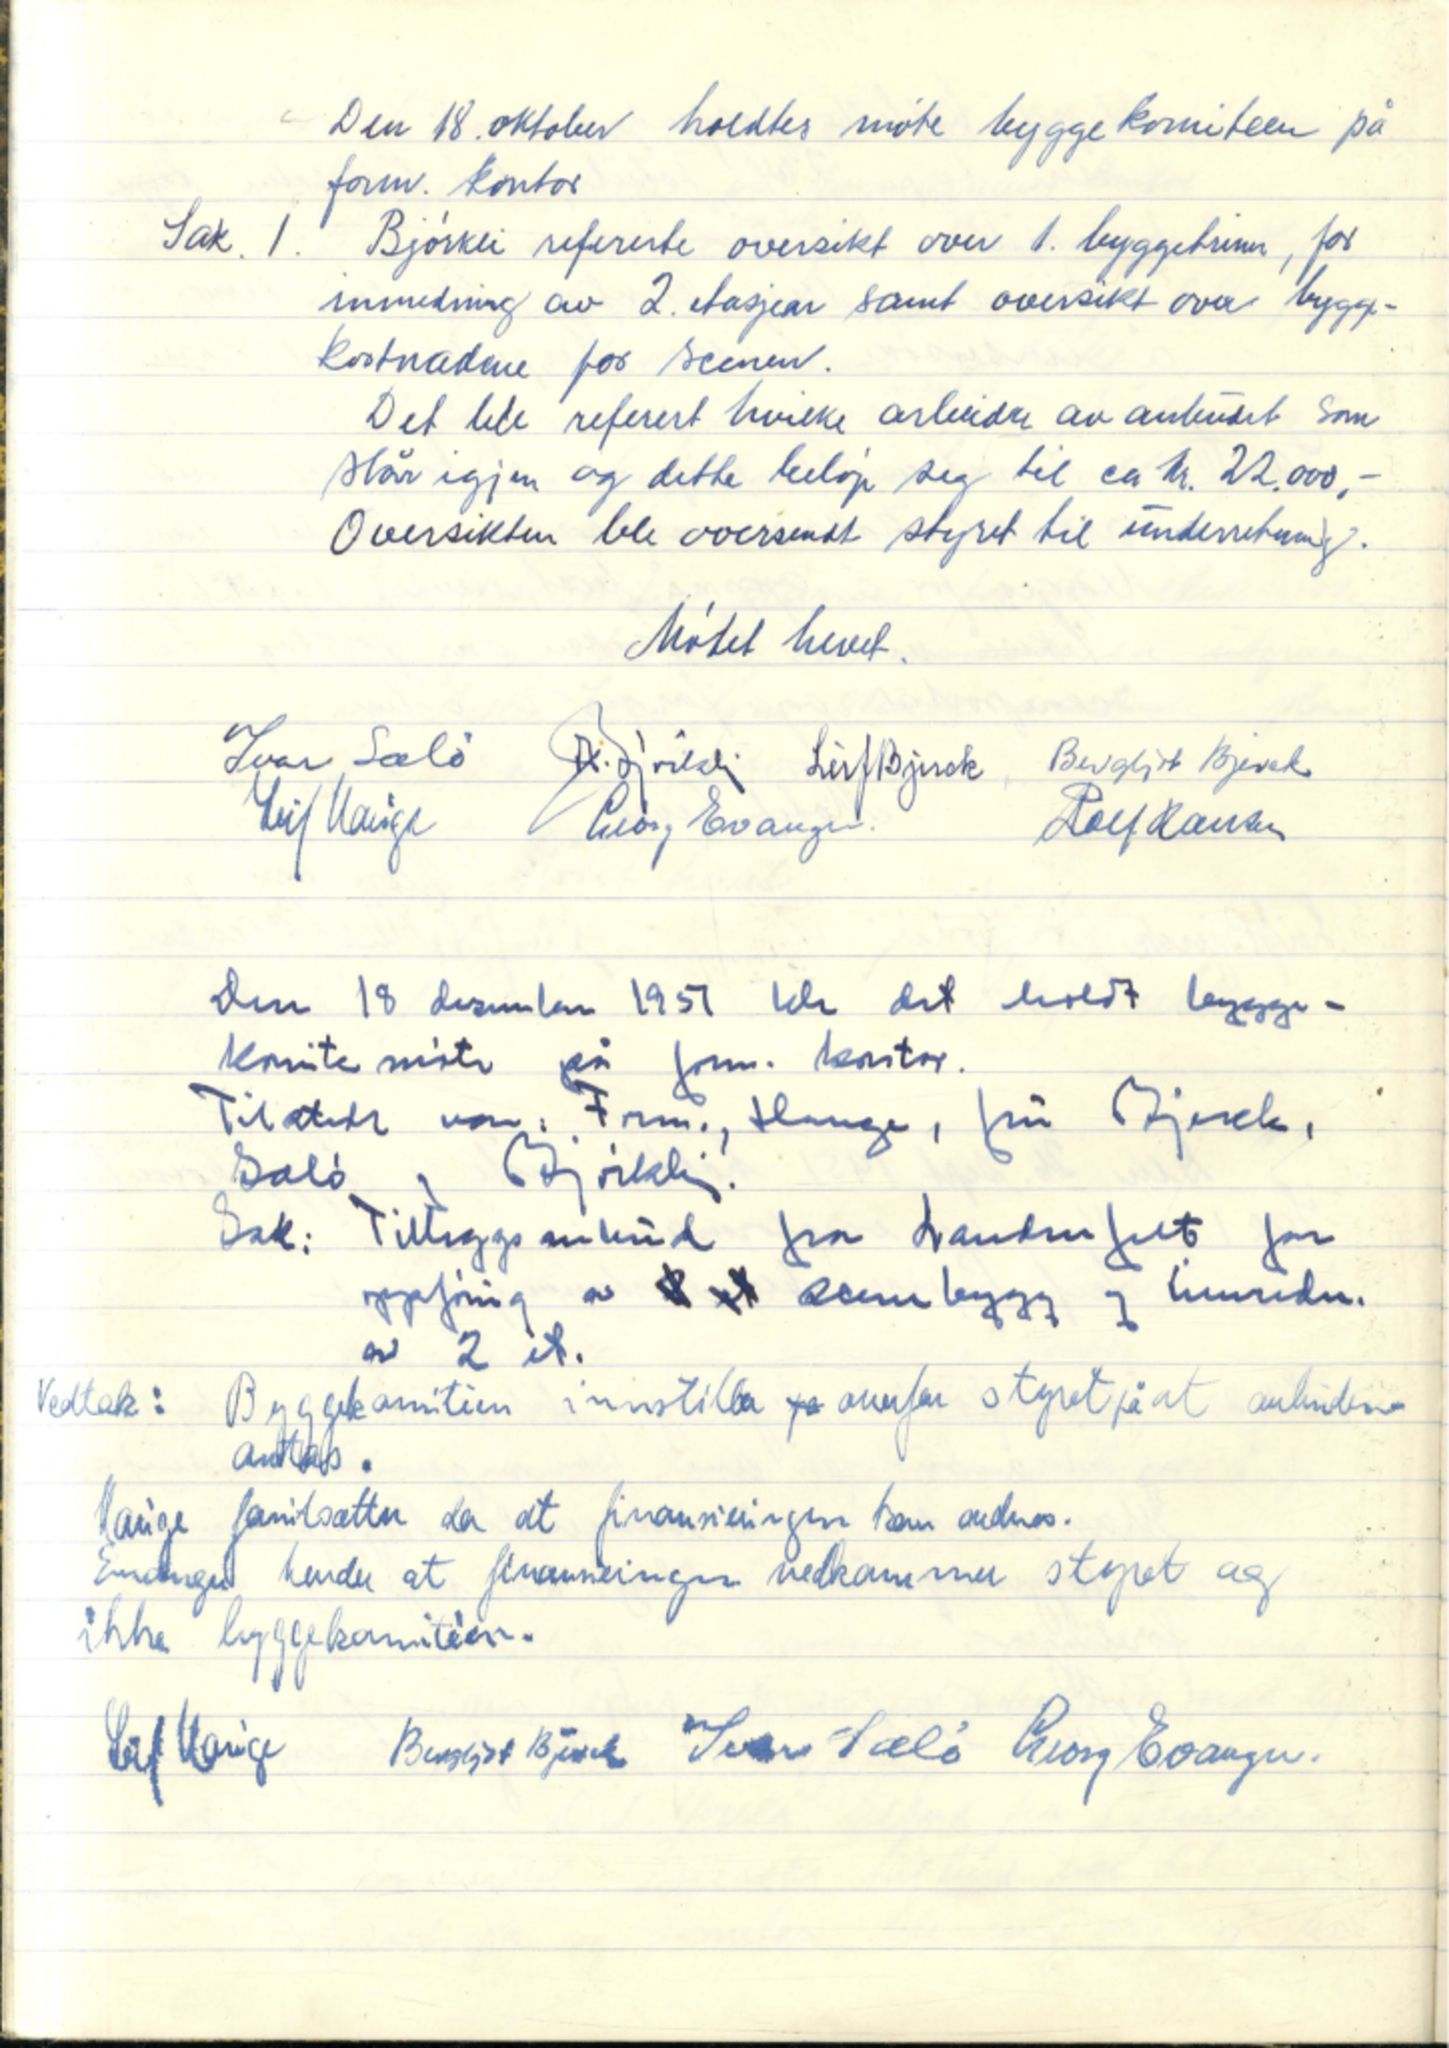 Den 18. oktober holdtes møte byggekomiteen på
form. kontor
Sak. 1. Bjørkli refererte oversikt over 1. byggetrinn, for
innredning av 2. etasjen samt oversikt over bygge-
kostnadene for scenen.
Det ble referert hvilke arbeider av anbudet som
står igjen og dette beløp seg til ca kr. 22.000,-
Oversikten ble oversendt styret til underretning.
Møtet hevet.
Ivar Sælø Bjørkli Leif Bjerck Bergljot Bjerck
Leif Hauge Georg Evanger. Rolf Hansen
Den 18 desember 1951 ble det holdt bygge-
komite møte på form. kontor.
Tilstede var: Form., Hauge, frü Bjerck,
Sælø, Bjørkli.
Sak: Tilleggsanbud fra Strandenfelt for
oppføring av scenebygg og innredn.
av 2 et.
Vedtak: Byggekomiteen innstiller overfor styret på at anbudene
antas.
Hauge forutsetter da at finansieringen kan ordnes.
Evanger hevder at finansieringen vedkommer styret og
ikke byggekomiteen.
Leif Hauge Bergljot Bjerck Ivar Sælø Georg Evanger.